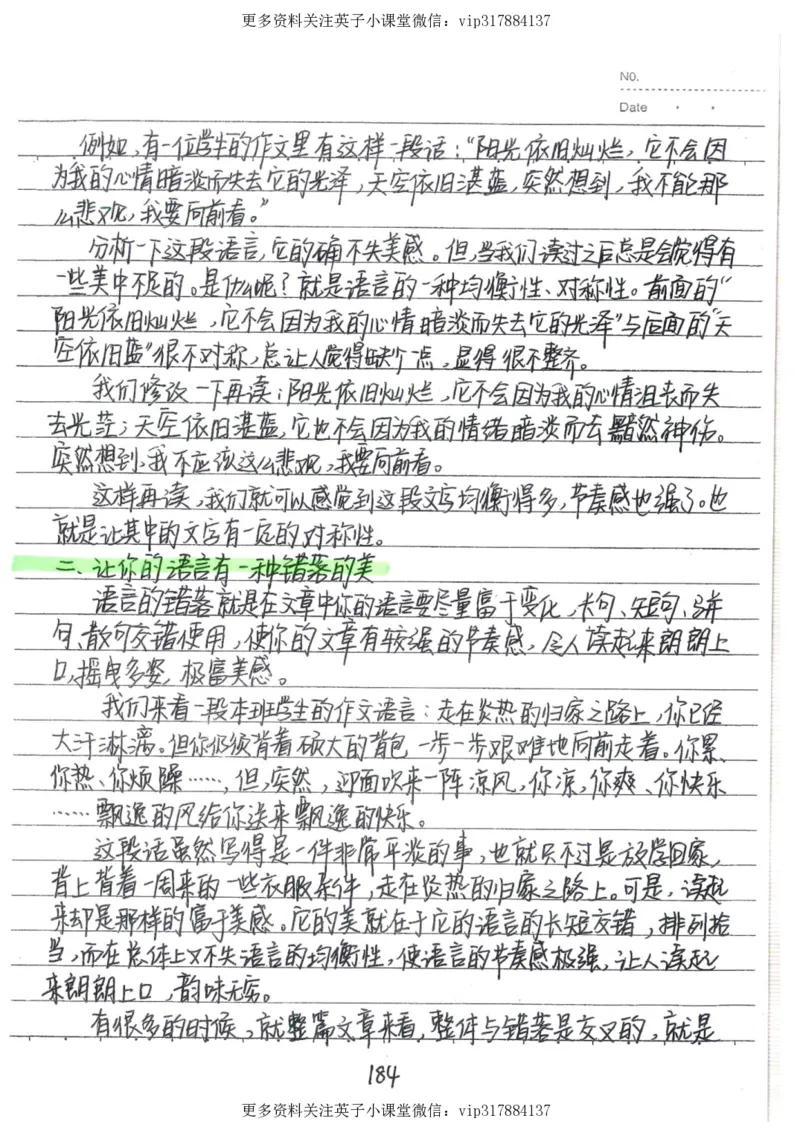 更多资料关注英子小课堂微信：vip317884137
No.
Date
例如，有一位学生的作文里有这样一段话：“阳光依旧灿烂，它不会因
为我的心情暗淡而失去它的光泽，天空依旧湛蓝，突然想到，我不能那
么悲观，我要向前看。”
分析一下这段语言，它的确不失美感。但，当我们读过之后总是会觉得有
一些美中不足的。是什么呢？就是语言的一种均衡性、对称性。前面的“
阳光依旧灿烂，它不会因为我的心情暗淡而失去它的光泽”与后面的“天
空依旧蓝”很不对称，总让人觉得缺个点，显得很不整齐。
我们修改一下再读：阳光依旧灿烂，它不会因为我的心情沮丧而失
去光茫；天空依旧湛蓝，它也不会因为我的情绪暗淡而去黯然神伤。
突然想到，我不应该这么悲观，我要向前看。
这样再读，我们就可以感觉到这段文字均衡得多，节奏感也强了。也
就是让其中的文字有一定的对称性。
二、让你的语言有一种错落的美
语言的错落就是在文章中你的语言要尽量富于变化，长句、短句、骈
句、散句交错使用，使你的文章有较强的节奏感，令人读起来朗朗上
口，摇曳多姿，极富美感。
我们来看一段本班学生的作文语言：走在炎热的归家之路上，你已经
大汗淋漓。但你仍须背着硕大的背包一步一步艰难地向前走着。你累、
你热、你烦躁……，但，突然，迎面吹来一阵凉风，你凉，你爽、你快乐
……飘逸的风给你送来飘逸的快乐。
这段话虽然写得是一件非常平淡的事，也就只不过是放学回家，
背上背着一周来的一些衣服杂件，走在炎热的归家之路上。可是，读起
来却是那样的富于美感。它的美就在于它的语言的长短交错，排列恰
当，而在总体上又不失语言的均衡性，使语言的节奏感极强，让人读起
来朗朗上口，韵味无穷。
有很多的时候，就整篇文章来看，整体与错落是交叉的，就是
184
更多资料关注英子小课堂微信：vip317884137